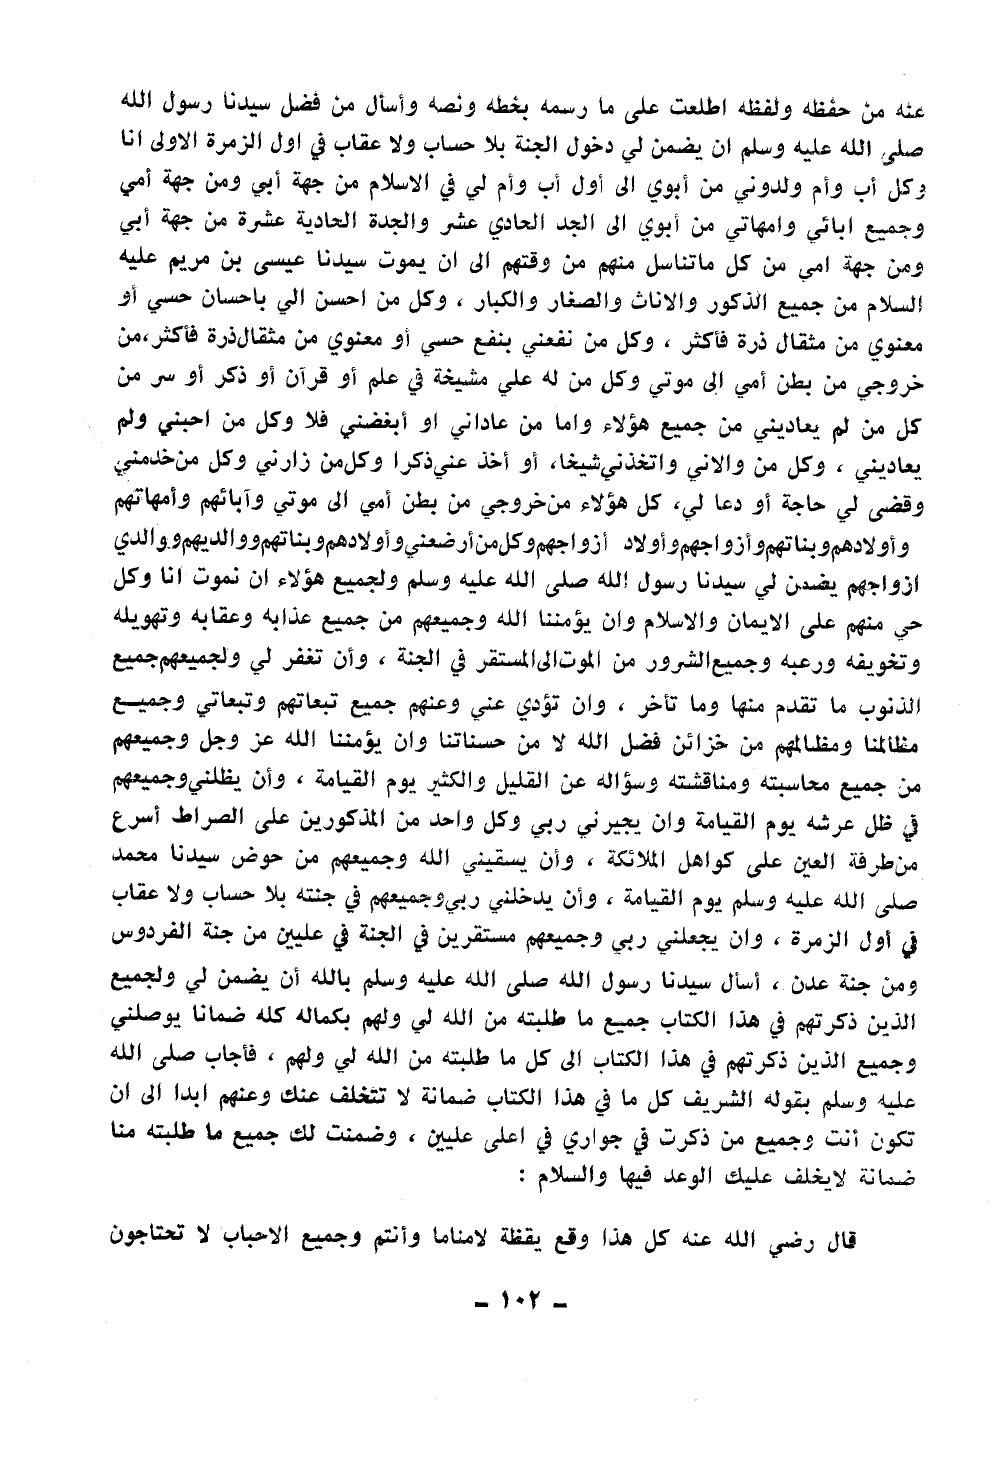 عنه من حفظه ولفظه اطلعت على ما رسمه بخطه ونصه وأسأل من فضل سيدنا رسول الله
صلى الله عليه وسلم ان يضمن لي دخول الجنة بلا حساب ولا عقاب في اول الزمرة الاولى انا
وكل أب وأم ولدوني من أبوي الى أول أب وأم لي في الاسلام من جهة أبي ومن جهة أمي
وجميع ابائي وامهاتي من أبوي الى الجد الحادي عشر والجدة الحادية عشرة من جهة أبي
ومن جهة امي من كل ماتناسل منهم من وقتهم الى ان يموت سيدنا عيسى بن مريم عليه
السلام من جميع الذكور والاناث والصغار والكبار ، وكل من احسن الي باحسان حسي أو
معنوي من مثقال ذرة فأكثر ، وكل من نفعني بنفع حسي أو معنوي من مثقال ذرة فأكثر،من
خروجي من بطن أمي الى موتي وكل من له علي مشيخة في علم أو قرآن أو ذكر أو سر من
كل من لم يعاديني من جميع هؤلاء واما من عاداني او أبغضني فلا وكل من احبني ولم
يعاديني ، وكل من والاني واتخذني شيخا، أو أخذ عني ذكرا وكل من زارني وكل من خدمني
وقضى لي حاجة أو دعا لي، كل هؤلاء من خروجي من بطن أمي الى موتي وآبائهم وأمهاتهم
وأولادهم وبناتهم وأزواجهم وأولاد أزواجهم وكل من أرضعني وأولادهم وبناتهم ووالديهم ووالدي
ازواجهم يضمن لي سيدنا رسول الله صلى الله عليه وسلم ولجميع هؤلاء ان نموت انا وكل
حي منهم على الايمان والاسلام وان يؤمننا الله وجميعهم من جميع عذابه وعقابه وتهويله
وتخويفه ورعبه وجميع الشرور من الموت الى المستقر في الجنة ، وأن تغفر لي ولجميعهم جميع
الذنوب ما تقدم منها وما تأخر ، وان تؤدي عني وعنهم جميع تبعاتهم وتبعاتي وجميع
مظالمنا ومظالمهم من خزائن فضل الله لا من حسناتنا وان يؤمننا الله عز وجل وجميعهم
من جميع محاسبته ومناقشته وسؤاله عن القليل والكثير يوم القيامة ، وأن يظلني وجميعهم
في ظل عرشه يوم القيامة وان يجيرني ربي وكل واحد من المذكورين على الصراط أسرع
من طرفة العين على كواهل الملائكة ، وأن يسقيني الله وجميعهم من حوض سيدنا محمد
صلى الله عليه وسلم يوم القيامة ، وأن يدخلني ربي وجميعهم في جنته بلا حساب ولا عقاب
في أول الزمرة ، وان يجعلني ربي وجميعهم مستقرين في الجنة في عليين من جنة الفردوس
ومن جنة عدن ، أسأل سيدنا رسول الله صلى الله عليه وسلم بالله أن يضمن لي ولجميع
الذين ذكرتهم في هذا الكتاب جميع ما طلبته من الله لي ولهم بكماله كله ضمانا يوصلني
وجميع الذين ذكرتهم في هذا الكتاب الى كل ما طلبته من الله لي ولهم ، فأجاب صلى الله
عليه وسلم بقوله الشريف كل ما في هذا الكتاب ضمانة لا تتخلف عنك وعنهم ابدا الى ان
تكون أنت وجميع من ذكرت في جواري في اعلى عليين ، وضمنت لك جميع ما طلبته منا
ضمانة لايخلف عليك الوعد فيها والسلام :
قال رضي الله عنه كل هذا وقع يقظة لامناما وأنتم وجميع الاحباب لا تحتاجون
- ١٠٢ -